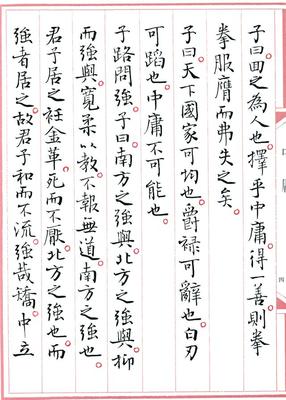 中庸
四
子曰回之為人也。擇乎中庸。得一善則拳
拳服膺而弗失之矣。
子曰天下國家可均也。爵祿可辭也。白刃
可蹈也。中庸不可能也。
子路問強。子曰南方之強與。北方之強與。抑
而強與。寬柔以教。不報無道。南方之強也。
君子居之。衽金革。死而不厭。北方之強也。而
強者居之。故君子和而不流。強哉矯。中立